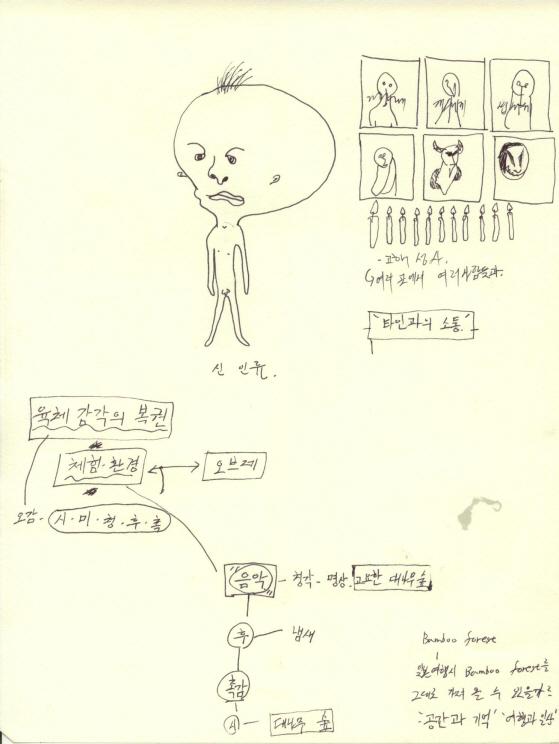 신 인류.
- 고해 성사.
여러 곳에서 여러사람들과.
"타인과의 소통."
육체 감각의 복권
체험·환경
오브제
오감 - 시·미·청·후·촉
"음악" - 청각 - 명상. 고요한 대나무 숲
후 - 냄새
촉감
시 - 대나무 숲
Bamboo forese
일본여행시 Bamboo forese를
그대로 가져 올 수 있을까?
'공간과 기억' '여행과 일상'